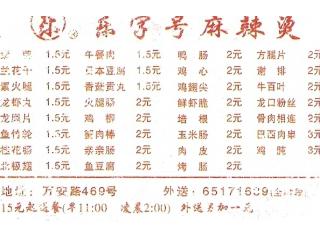 乐字号麻辣烫
1.5元 午餐肉 1.5元 鸭肠 2元 方腿片 2元
兰花干 1.5元 日本豆腐 1.5元 鸡心 2元 2元
素火腿 1.5元 香菇贡丸 1.5元 鸡翅尖 2元 牛百叶 2元
龙虾丸 1.5元 火腿肠 2元 鲜虾脆 2元 龙口粉丝 2元
龙凤片 1.5元 鸡柳 2元 培根 2元 骨肉相连 2元
鱼竹轮 1.5元 蟹肉棒 2元 玉米肠 2元 巴西肉串 3元
桂花肠 1.5元 亲亲肠 2元 肉皮 2元 鸡肫 3元
北极翅 1.5元 鱼豆腐 2元 烤肠 2元
地址:万安路469号 外送:65171639
15元起送餐(早11:00 凌晨2:00) 外送另加一元